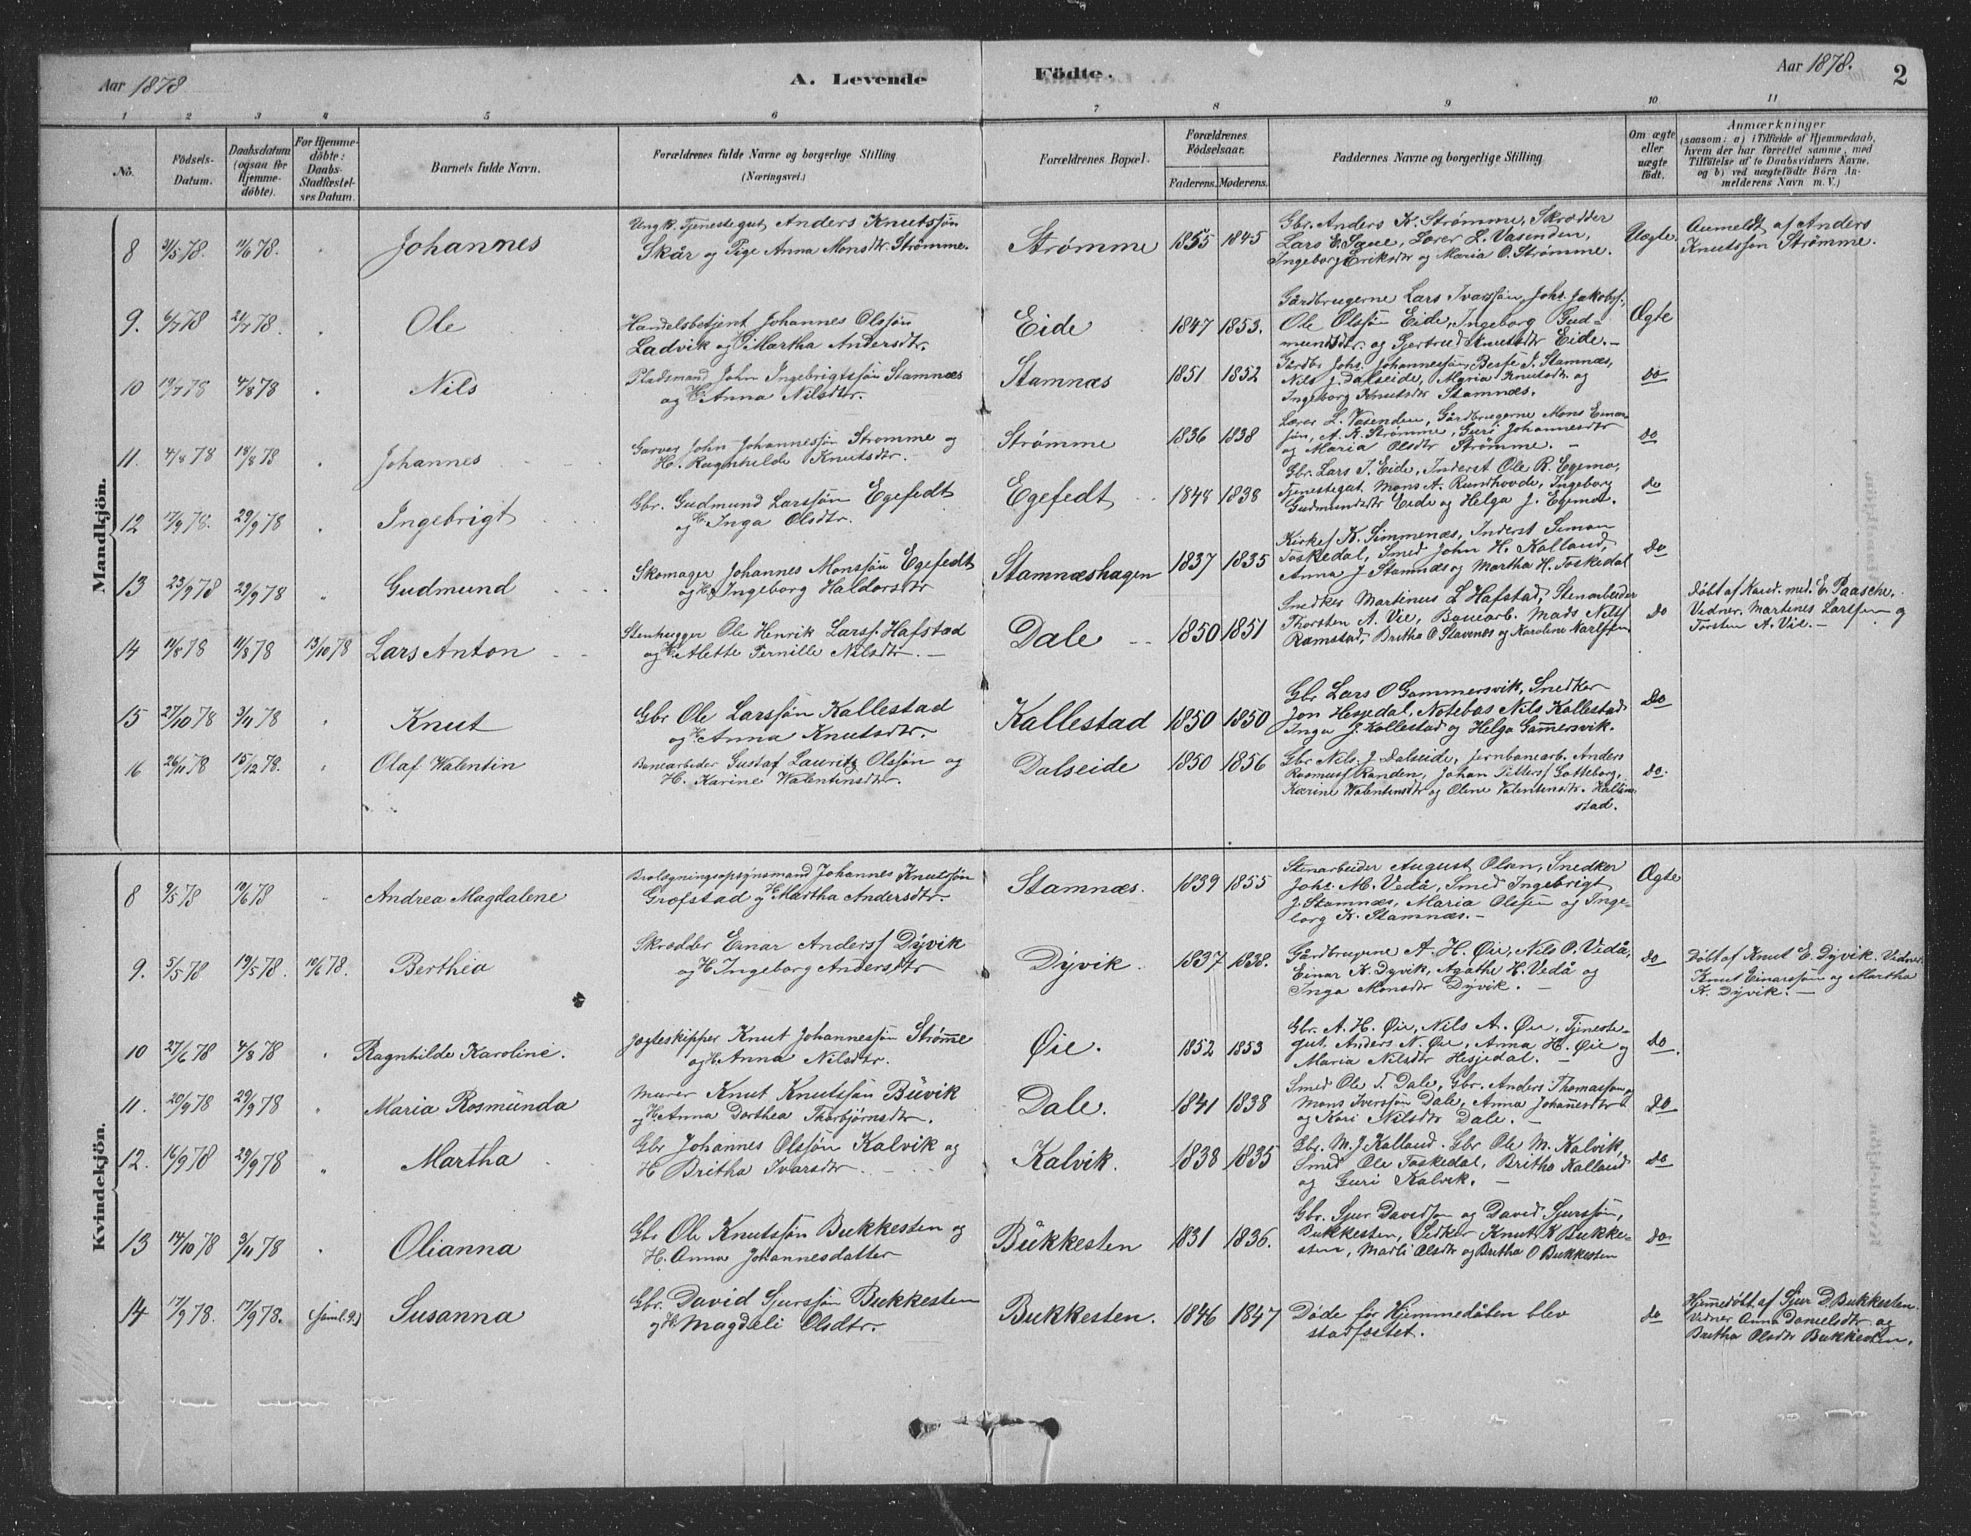 Aar 1878
A. Levende Födte.
Aar 1878. 2
1 2 3 4 5 6 7 8 9 10 11
No.
Födsels-
Datum.
Daabsdatum
(ogsaa for
Hjemme-
döbte).
For Hjemme-
döbte:
Daabs-
Stadfæstel-
ses Datum.
Barnets fulde Navn.
Forældrenes fulde Navne og borgerlige Stilling
(Næringsvei.)
Forældrenes Bopæl.
Forældrenes
Födselsaar.
Faderens. Moderens.
Faddernes Navne og borgerlige Stilling
Om ægte
eller
uægte
födt.
Anmærkninger
(saasom: a) i Tilfælde af Hjemmedaab,
hvem der har forrettet samme, med
Tilföielse af to Daabsvidners Navne,
og b) ved uægtefödte Börn An-
melderens Navn m. V.)
Mandkjön.
8 9/5 78. 10/6 78. " Johannes
Ungk. Tjenestegut Anders Knutssön
Skår og Pige Anna Monsdtr. Strömme.
Strømme 1855 1845
Gbr. Anders K. Strømme, Skrædder
Lars E. Saue, Lærer L. Vasenden,
Ingeborg Eriksdtr og Maria O. Strømme.
Uægte.
Anmeldt af Anders
Knutssön Strömme.
9. 6/7 78 21/7 78. " Ole
Handelsbetjent Johannes Olssön
Ladvik og H. Martha Andersdtr.
Eide 1847 1853.
Gårdbrugerne Lars Ivarssön, Johs. Jakobss.
Ole Olssön Eide, Ingeborg Gud-
mundsdtr. og Gjertrud Knutsdtr Eide.-
Ægte
10 19/7 78 4/8 78 " Nils
Pladsmand John Ingebrigtssön Stamnæs
og H. Anna Nilsdtr.
Stamnæs 1851 1852
Gårdbr Johs. Johannessön, J. Stamnæs,
Nils J. Dalseide, Maria Knutsdtr og
Ingeborg Knutsdtr Stamnæs.
do
11. 4/8 78 18/8 78 " Johannes
Garver John Johannessön Strømme og
H. Ragnhilde Knutsdtr.
Strømme 1836 1838
Lærer L. Vasenden, Gårdbrugerne Mons Einar-
sön, A. K. Strømme, Guri Johannesdtr
og Maria Olsdtr Strømme. -
do
12 17/9 78. 29/9 78 " Ingebrigt
Gbr. Gudmund Larssön Egefedt
og H. Inga Olsdtr.
Egefedt 1848 1838
Gbr. Lars I. Eide, Inderst Ole R. Egemo,
Tjenestegut Mons A. Rundhovde, Ingeborg
Gudmundsdtr Eide og Helga J. Egemo.
do
13 23/9 78 29/9 78 " Gudmund
Skomager Johannes Monssön Egefedt
og H. Ingeborg Haldorsdtr
Stamnæshagen 1837 1835
Kirkes. K. Simmenæs, Inderst Simon
Toskedal, Smed John H. Kalland,
Anna J Stamnæs og Martha H. Toskedal
do
14 11/8 78 11/8 78 13/10 78 Lars Anton
Stenhugger Ole Henrik Larss. Hafstad
og H. Alette Pernille Nilsdtr. -
Dale 1850 1851
Snedker Martinus L Hafstad, Stenarbeider
Thorsten A. Vie, Banearb. Mads Nilss.
Ramstad, Britha O Stavenæs og Karoline Karlssen.
do
Döbt af Kand. med. E. Paasche.
Vidner, Martines Larssen og
Torsten A. Vie. -
15 27/10 78 3/11 78 " Knut
Gbr Ole Larssön Kallestad
og H. Anna Knutsdtr.
Kallestad 1850 1850
Gbr Lars O Gammersvik, Snedker
Jon Hesjedal, Notebas Nils Kallestad
Inga J. Kallestad og Helga Gammersvik.
do
16 26/11 78 15/12 78. " Olaf Valentin
Banearbeider Gustaf Lauritz Olssön og
H. Karine Valentinsdtr.
Dalseide 1850 1856
Gbr Nils J Dalseide, jernbanearb. Anders
Rasmuss Randen, Johan Petters. Gotteborg,
Karine Valentinsdtr og Olene Valentinsdtr. Kalle-
stad.
do.
Kvindekjön.
8 9/5 78 10/6 78 " Andrea Magdalene
Brolægningsopsynsmand Johannes Knutssön
Grofstad og H. Martha Andersdtr.
Stamnæs. 1839 1855
Stenarbeider August Olsen, Snedker
Johs. M. Vedå, Smed Ingebrigt
J. Stamnæs, Maria Olssen og Inge-
borg K. Stamnæs. -
Ægte
9. 5/5 78 19/5 78. 10/6 78. Berthea
Skrædder Einar Anderss. Dyvik
og H. Ingeborg Andersdtr
Dyvik. 1837 1838.
Gårdbrugerne A. H. Øie, Nils O. Vedå,
Einar K. Dyvik, Agathe H. Vedå og
Inga Monsdtr Dyvik. -
do
Döbt af Knut E. Dyvik. Vidner
Knut Einarssön og Martha
K. Dyvik. -
10 27/6 78 4/8 78 " Ragnhilde Karoline.
Jagteskipper Knut Johannessön Strømme
og H. Anna Nilsdtr.
Øie. 1852 1853
Gbr. A. H. Øie, Nils A. Øie, Tjeneste-
gut Anders N. Øie, Anna H. Øie og
Maria Nilsdtr Hesjedal. -
do.
11. 20/9 78 29/9 78 " Maria Rosmunda
Murer Knut Knutssön Büvik
og H. Anna Dorthea Thorbjørnsdtr.
Dale. 1841 1838
Smed Ole T. Dale, Gbr. Anders Thomassön og
Mons Iverssön Dale, Anna Johannesdtr
og Kari Nilsdtr Dale. -
do
12. 16/9 78 29/9 78 " Martha
Gbr Johannes Olssön Kalvik og
H Britha Ivarsdtr
Kalvik. 1838 1835
Gbr. M. J. Kalland. Gbr Ole M. Kalvik,
Smed Ole Toskedal, Britha Kalland
og Guri Kalvik. -
do
13 14/10 78 3/11 78 " Olianna
Gbr Ole Knutssön Bukkesten og
H. Anna Johannesdatter
Bükkesten 1831 1836.
Gbr. Sjur Davidsson og David Sjurssön,
Bukkesten, Knut K Bukke-
sten, Marli Olsdtr og Britha O Bukkesten
do.
14 17/9 78. 17/9 78. (jaml. 9.) Susanna
Gbr. David Sjurssön Bukkesten
og H. Magdeli Olsdtr.
Bukkesten. 1846 1847
Døde før Hjemmedåben blev
stadfæstet.
do
Hjemmedöbt af Sjur D. Bukkesten.
Vidner Anna Danielsdtr og
Britha Olsdtr Bukkesten.